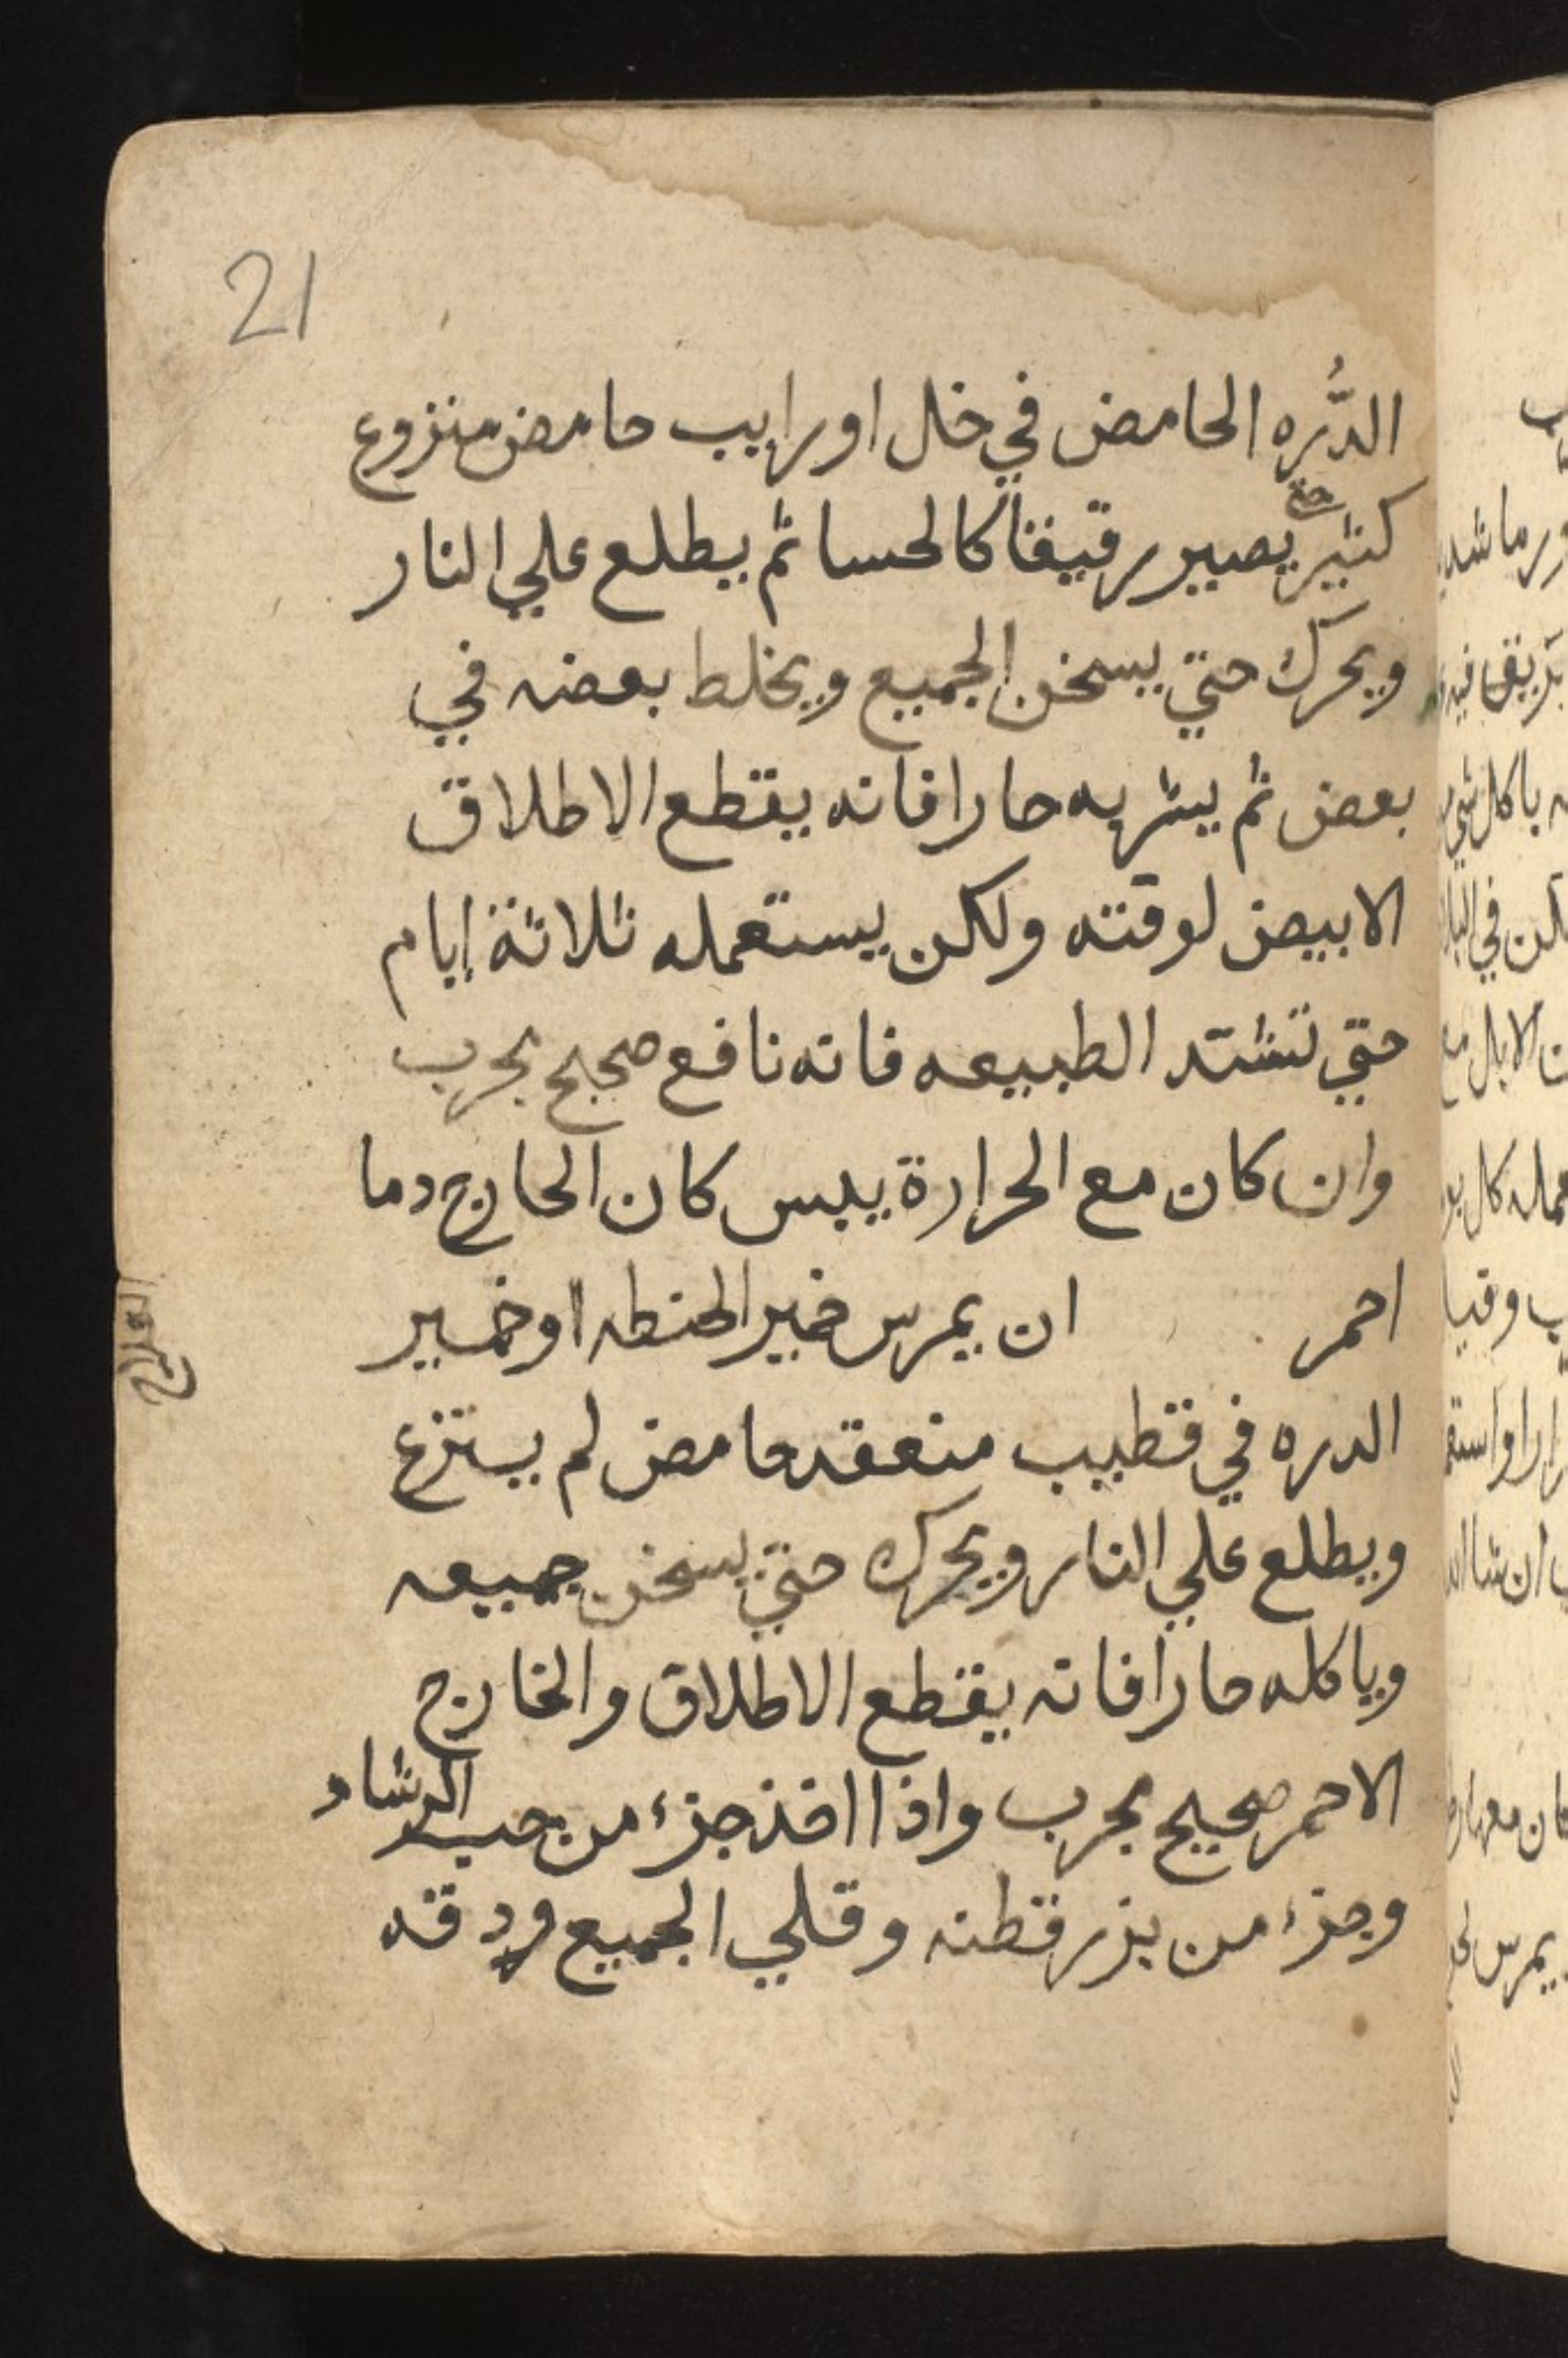 21
الدُّره الحامض في خل او رايب حامض منزوع
كثير حتي يصير رقيقا كالحسا ثم يطلع علي النار
ويحرك حتي يسخن الجميع ويخلط بعضه في
بعض ثم يشربه حارا فانه يقطع الاطلاق
الابيض لوقته ولكن يستعمله ثلاثة ايام
حتي تشتد الطبيعه فانه نافع صحيح مجرب
وان كان مع الحرارة يبس كان الخارج دما
احمر ان يمرس خمير الحنطه او خمير
الدره في قطيب منعقد حامض لم ينتزع
ويطلع علي النار ويحرك حتي يسخن جميعه
وياكله حارا فانه يقطع الاطلاق والخارج
الاحمر صحيح مجرب واذا اخذ جزء من حب الرشاد
وجزء من بزر قطنه وقلي الجميع ودقه
العلاج